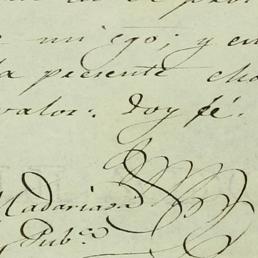 mi ego; y en
la presente
valor. Doy fé.
Madariaga
Pub.co